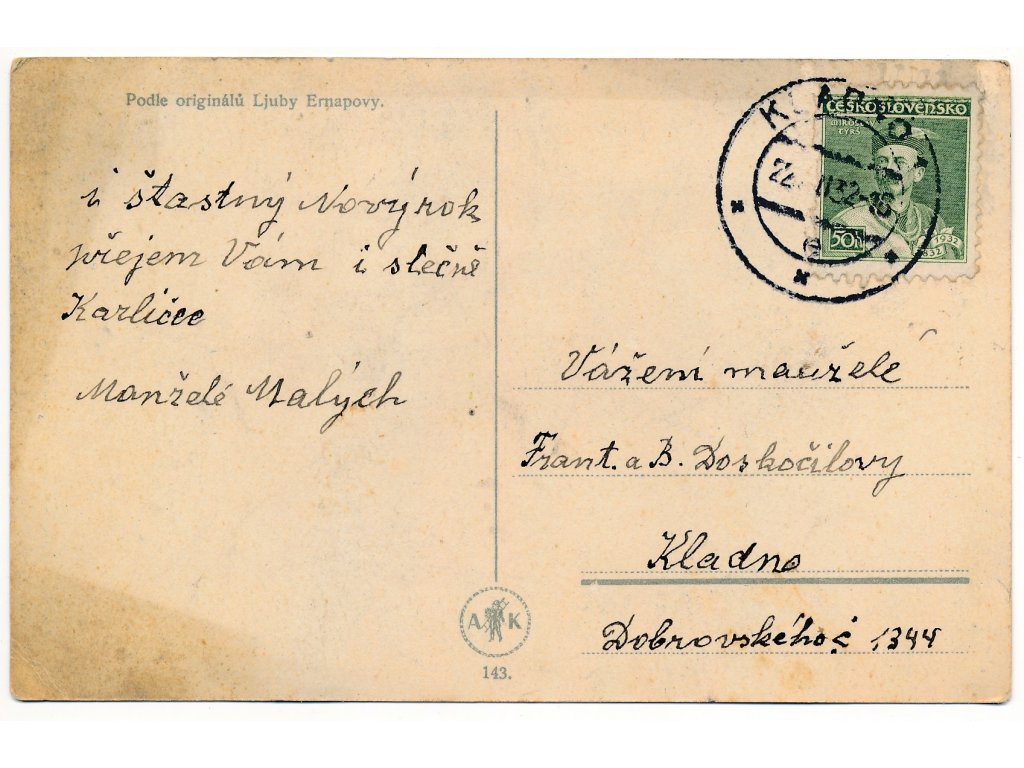 Podle originálů Ljuby Ernapovy.
i štastný Nový rok
přejem Vám i slečně
Karličce
Manželé Malých
KLADNO
ČESKOSLOVENSKO
MIROSLAV
TYRŠ
50h
1932
1832
Vážení manželé
Frant. a B. Doskočilovy
Kladno
Dobrovského č 1344
A K
143.